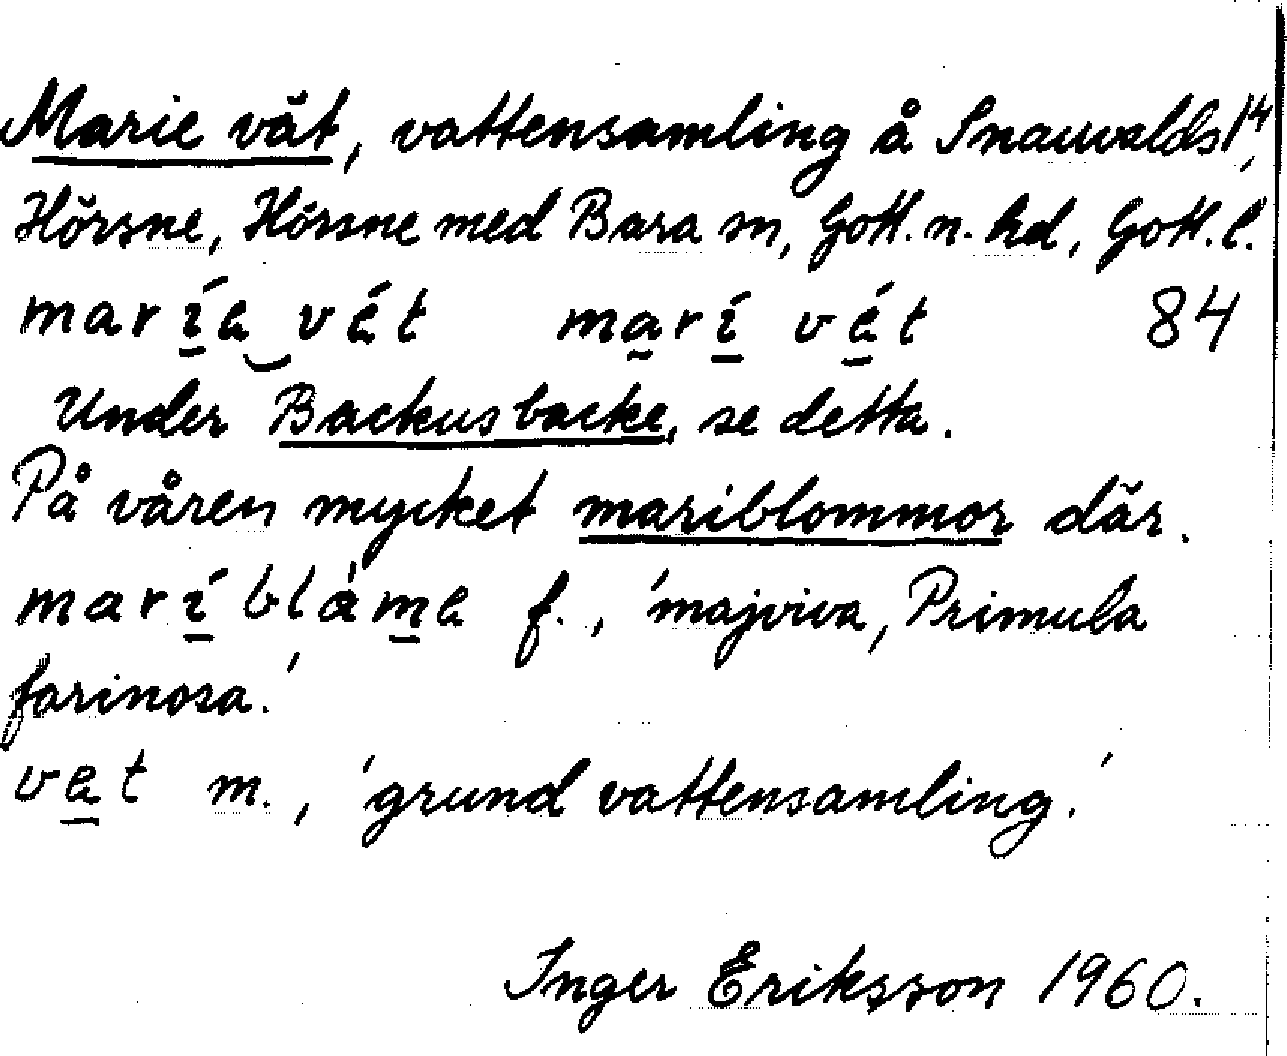 Marie vät, vattensamling å Snauvalds 1⁴,
Hörsne, Hörsne med Bara sn, Gotl. n. hd, Gotl. l.
marí̱a‿vát ma̱rí̱ vá̱t 84
Under Backusbacke, se detta.
På våren mycket mariblommor där.
marí̱blȧm̱a f., 'majviva, Primula
farinosa.'
va̱t m., 'grund vattensamling.'
Inger Eriksson 1960.